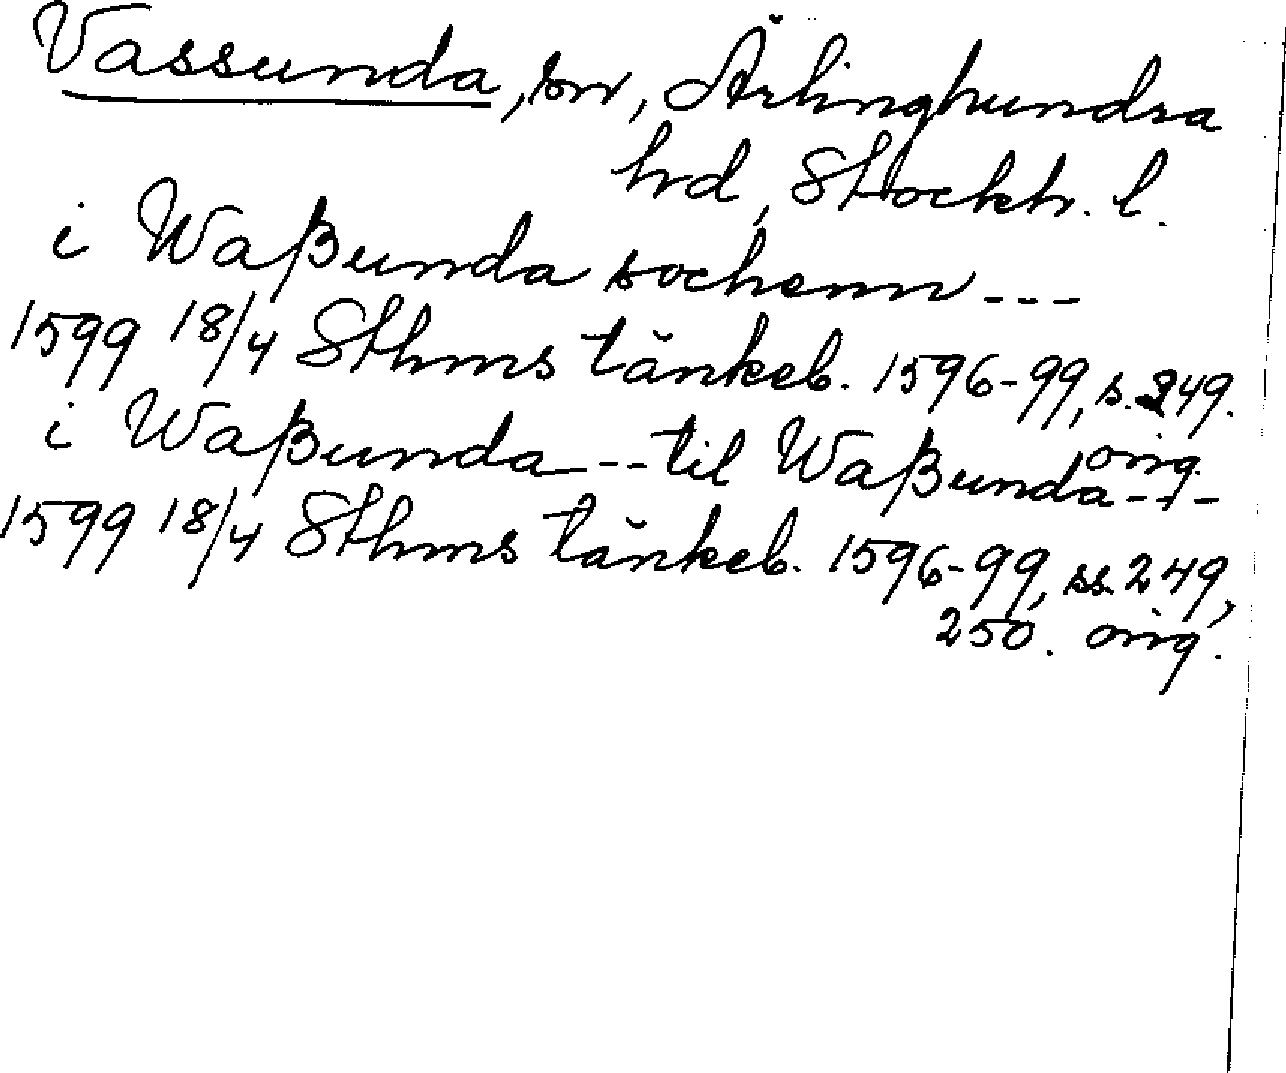 Vassunda, sn, Ärlinghundra
hd, Stockh. l.
i Waßunda sochenn ---
1599 18/4 Sthms tänkeb. 1596-99, s. 249.
orig.
i Waßunda --- til Waßunda ---
1599 18/4 Sthms tänkeb. 1596-99, ss. 249,
250. orig.